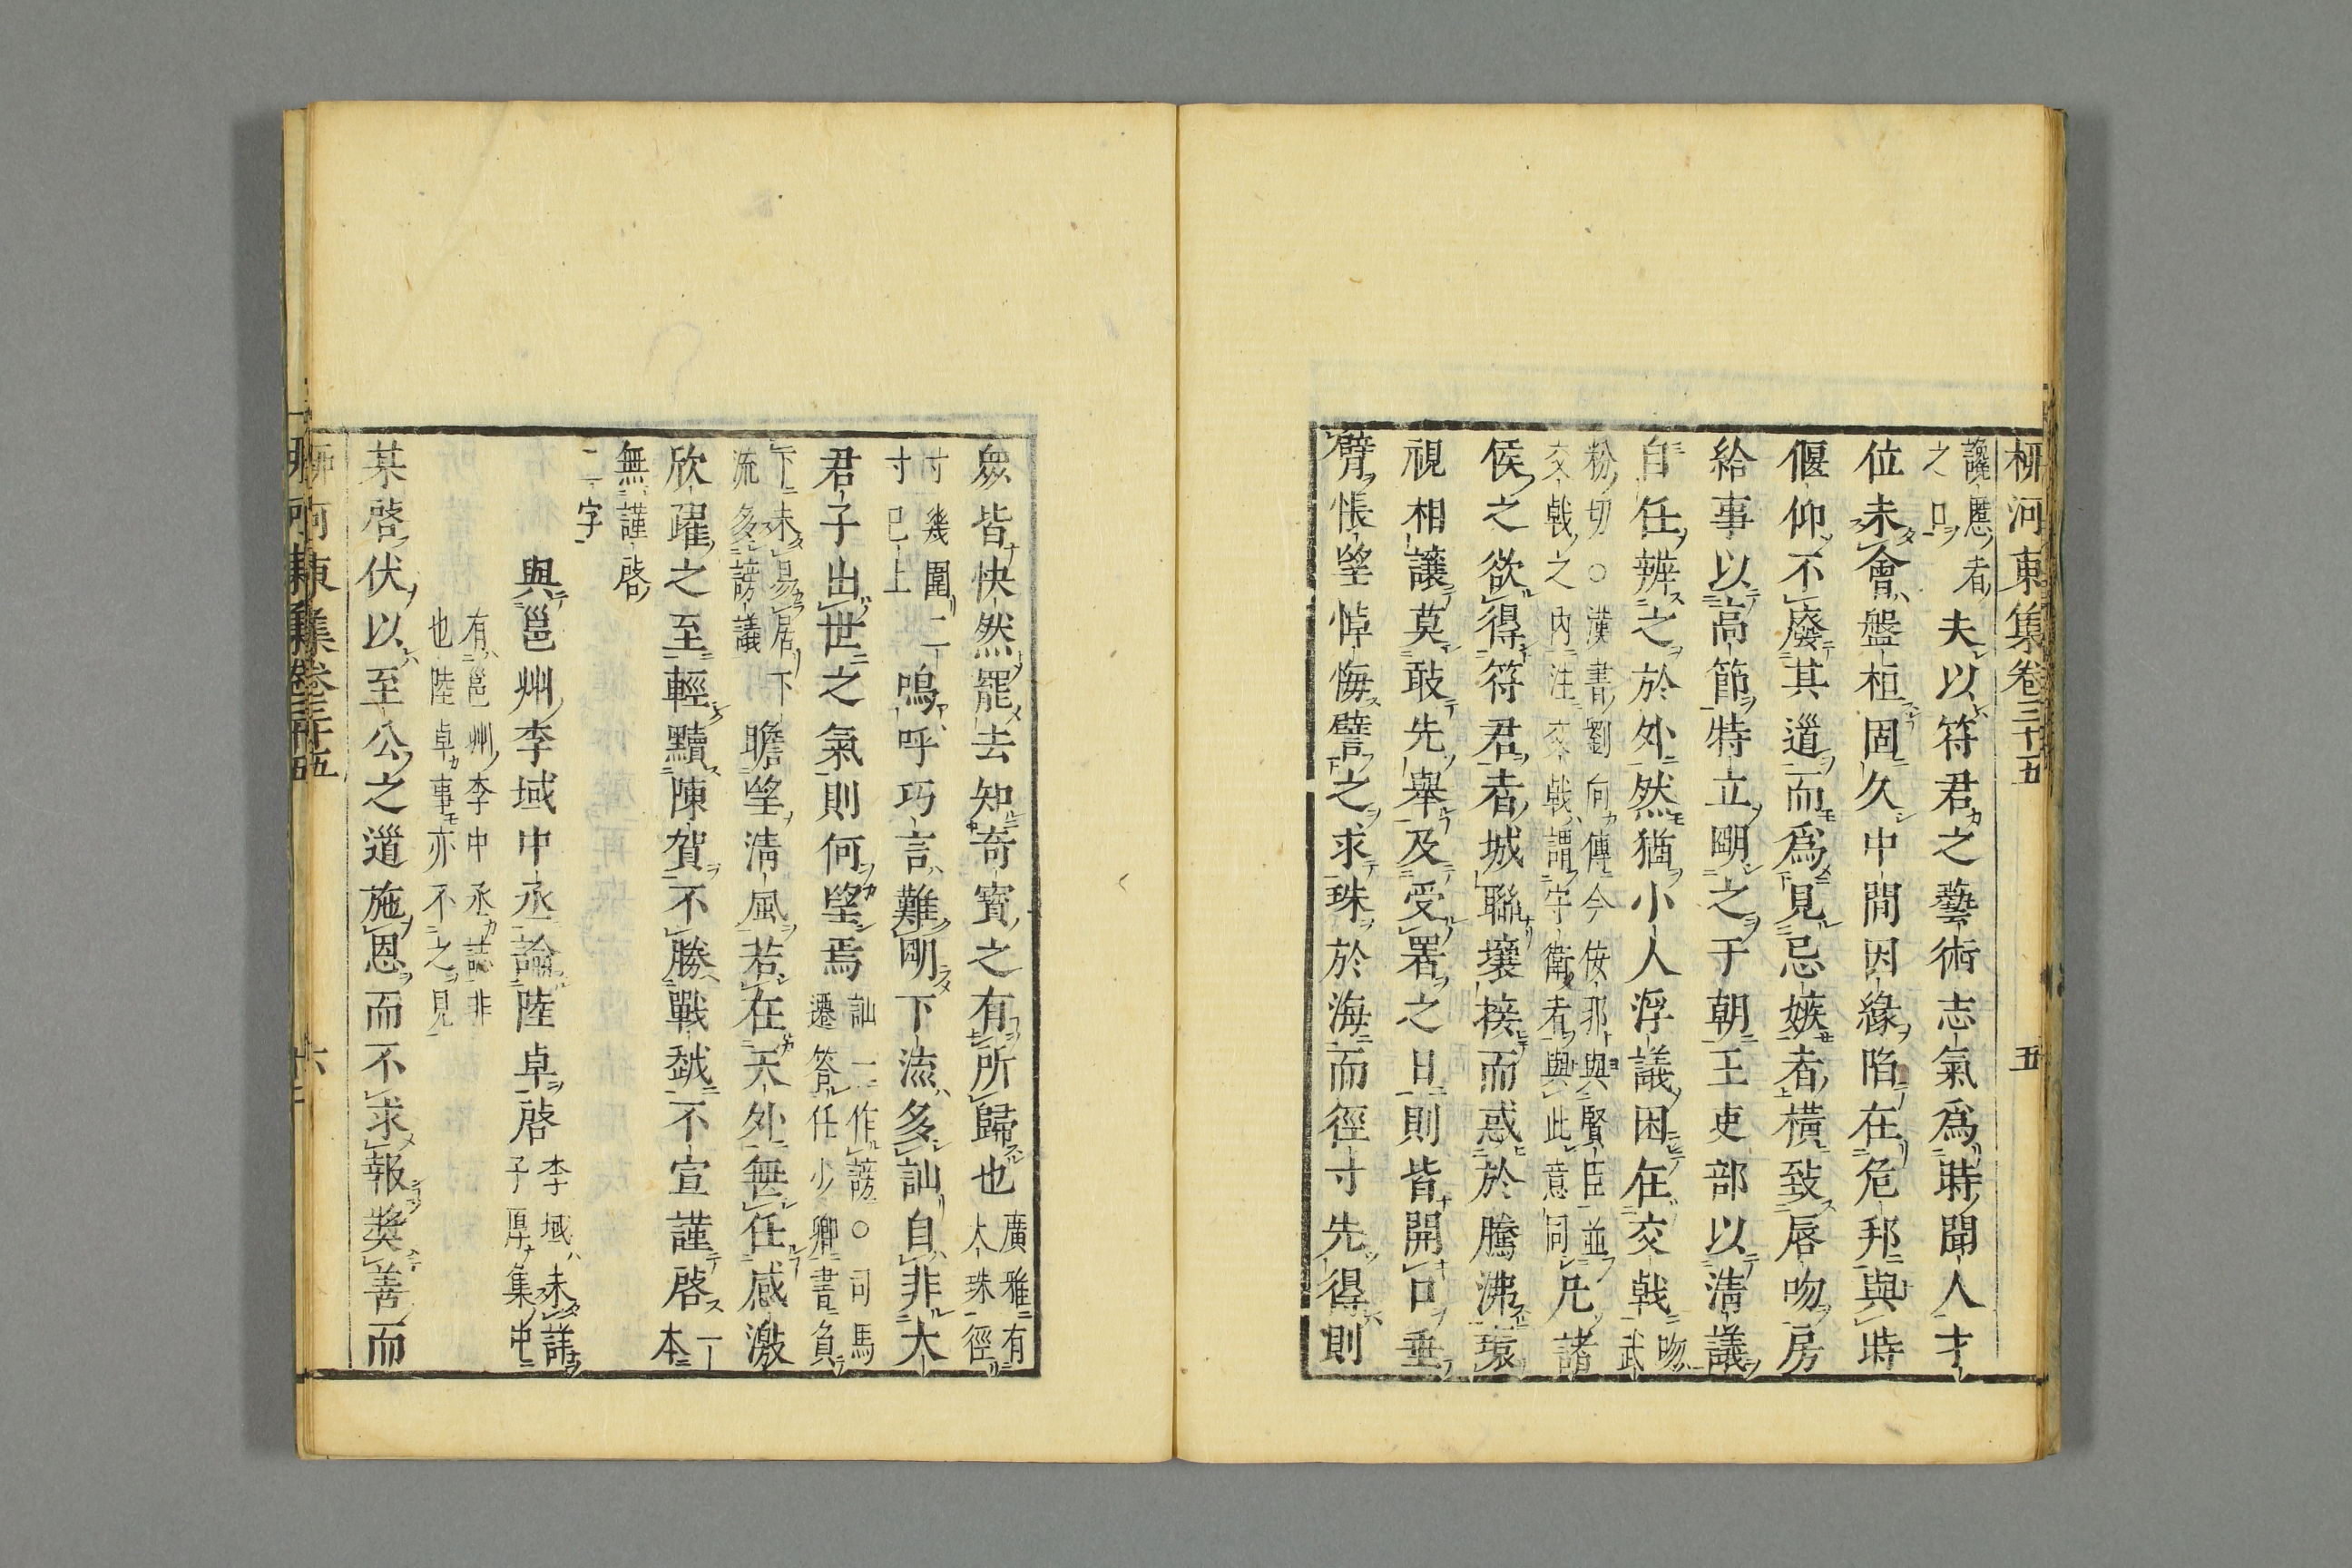 柳河東集卷三十五　五
讒慝者
之口
夫以符君之藝術志氣爲時聞人才
位未會盤桓固久中間因緣陷在危邦與時
偃仰不廢其道而爲見忌嫉者橫致唇吻房
給事以高節特立明之于朝王吏部以清議
自任辨之於外然猶小人浮議困在交戟
吻武
粉切○漢書劉向傳今佞邪與賢臣並
交戟之内注交戟謂守衛者與此意同
凡諸
侯之欲得符君者城聯壤接而惑於騰沸環
視相讓莫敢先舉及受署之日則皆開口垂
臂悵望悼悔譬之求珠於海而徑寸先得則
衆皆快然罷去知奇寶之有所歸也
廣雅有
大珠徑
寸幾圍二
寸已上
嗚呼巧言難明下流多訕自非大
君子出世之氣則何望焉
訕一作謗○司馬
遷答任少卿書負
下未易居下
流多謗議
瞻望清風若在天外無任感激
欣躍之至輕黷陳賀不勝戰越不宣謹啓
一
本
無謹啓
二字
與邕州李域中丞論陸卓啓
李域未詳
子厚集中
有邕州李中丞誌非
也陸卓事亦不之見
某啓伏以至公之道施恩而不求報奬善而
柳河東集卷三十五　六